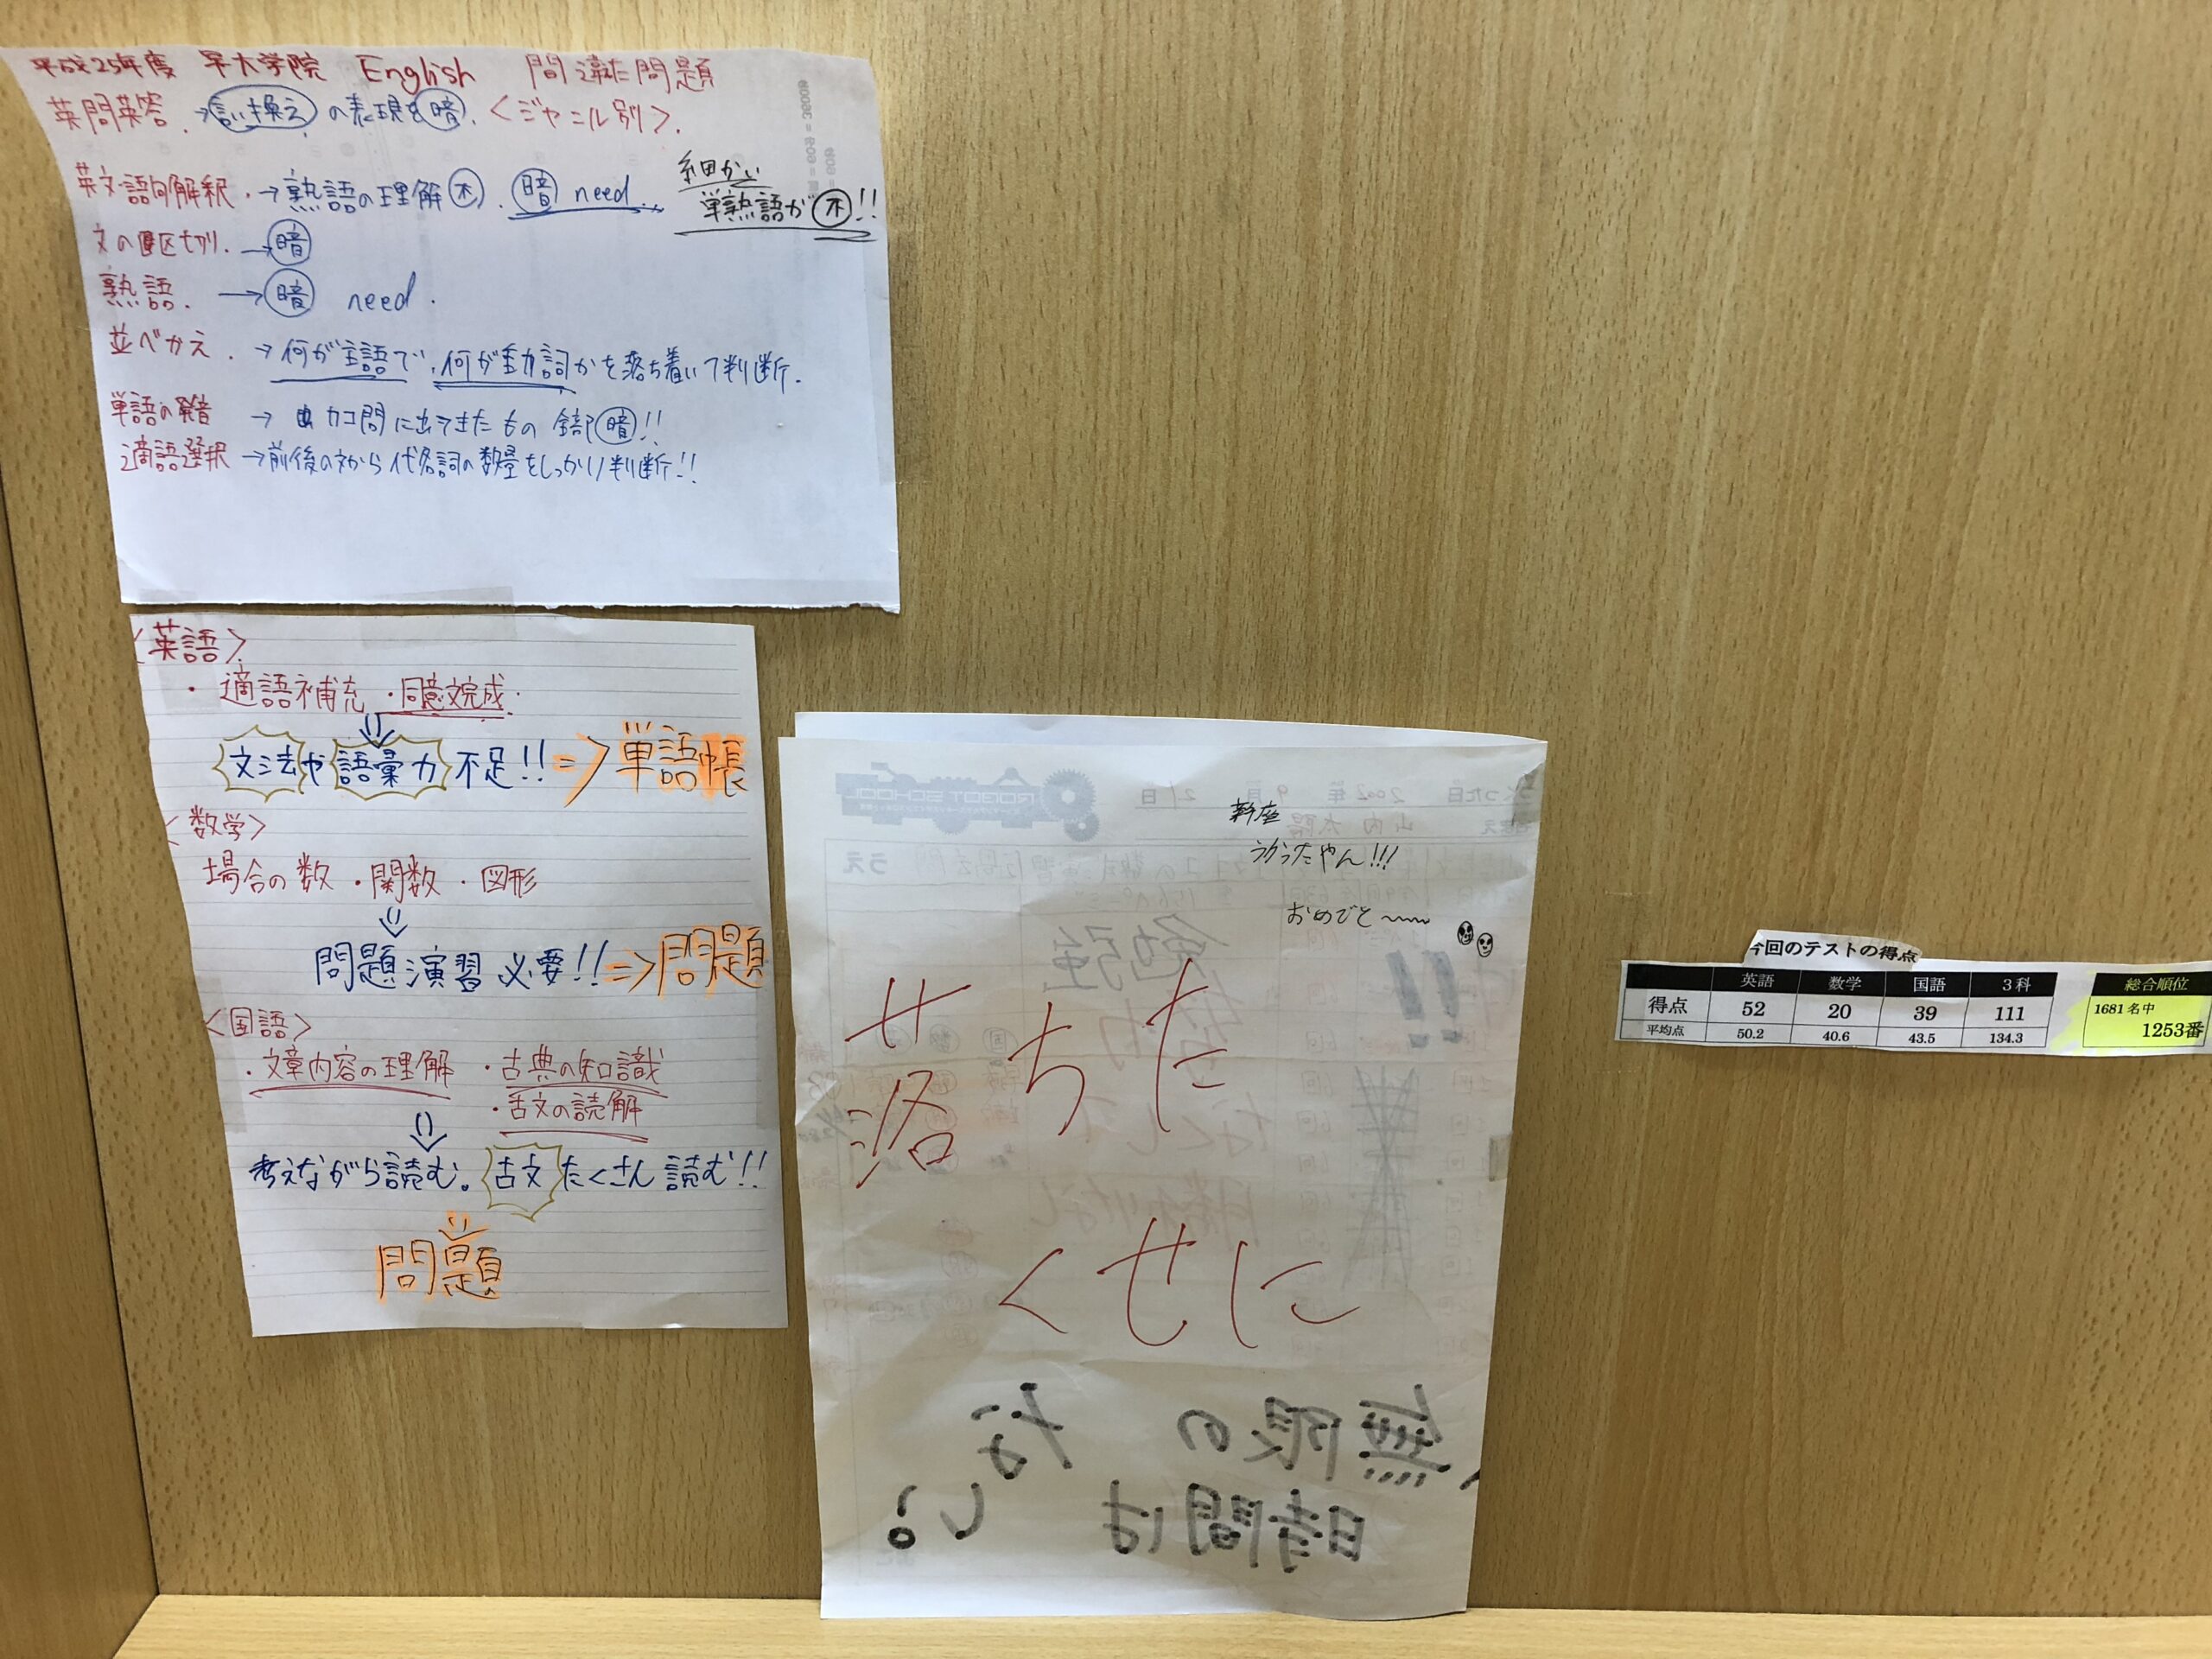 平成25年度 早大学院 English 間違えた問題
英問英答. →言い換えの表現を暗. <ジャンル別>.
英文・語句解釈. →熟語の理解不. 暗 need.
細かい
単熟語が不!!
文の区切り. →暗
熟語. →暗 need.
並べかえ. →何が主語で、何が動詞かを落ち着いて判断.
単語の発音 → カコ問に出てきたもの全部暗!!
適語選択 →前後の文から代名詞の数量をしっかり判断!!
<英語>
・適語補充 ・同意文完成.
文法や語彙力不足!! ⇒単語帳
<数学>
場合の数・関数・図形
問題演習必要!! ⇒問題
<国語>
・文章内容の理解 ・古典の知識
・古文の読解
考えながら読む。古文たくさん読む!!
問題
新座
うかったやん!!!
おめでと〜
落ちた
くせに
無限の
時間は
ない。
今回のテストの得点
英語 数学 国語 3科
得点 52 20 39 111
平均点 50.2 40.6 43.5 134.3
総合順位
1681名中
1253番